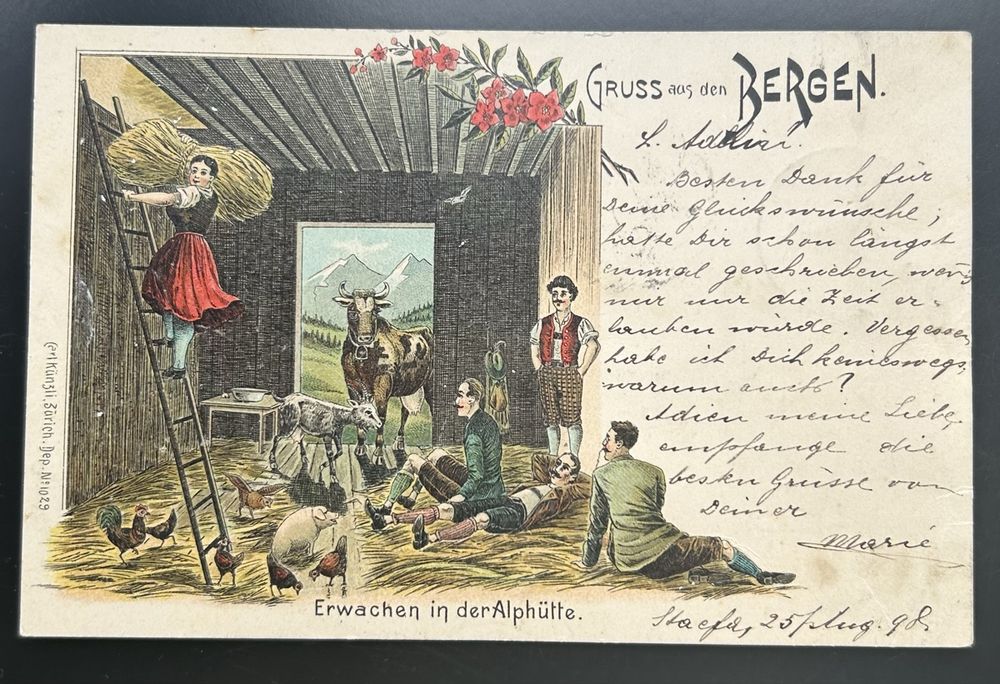 GRUSS aus den BERGEN.
L.
Besten Dank für
Deine Glückswünsche;
hätte Dir schon längst
einmal geschrieben, wenn
nur mir die Zeit er-
lauben würde. Vergessen
habe ich Dich keineswegs,
warum auch?
Adieu meine Liebe
empfange die
besten Grüsse von
Deiner
Marie
Staefa, 25/Aug. 98.
Erwachen in der Alphütte.
Carl Künzli, Zürich. Dep. No 1029